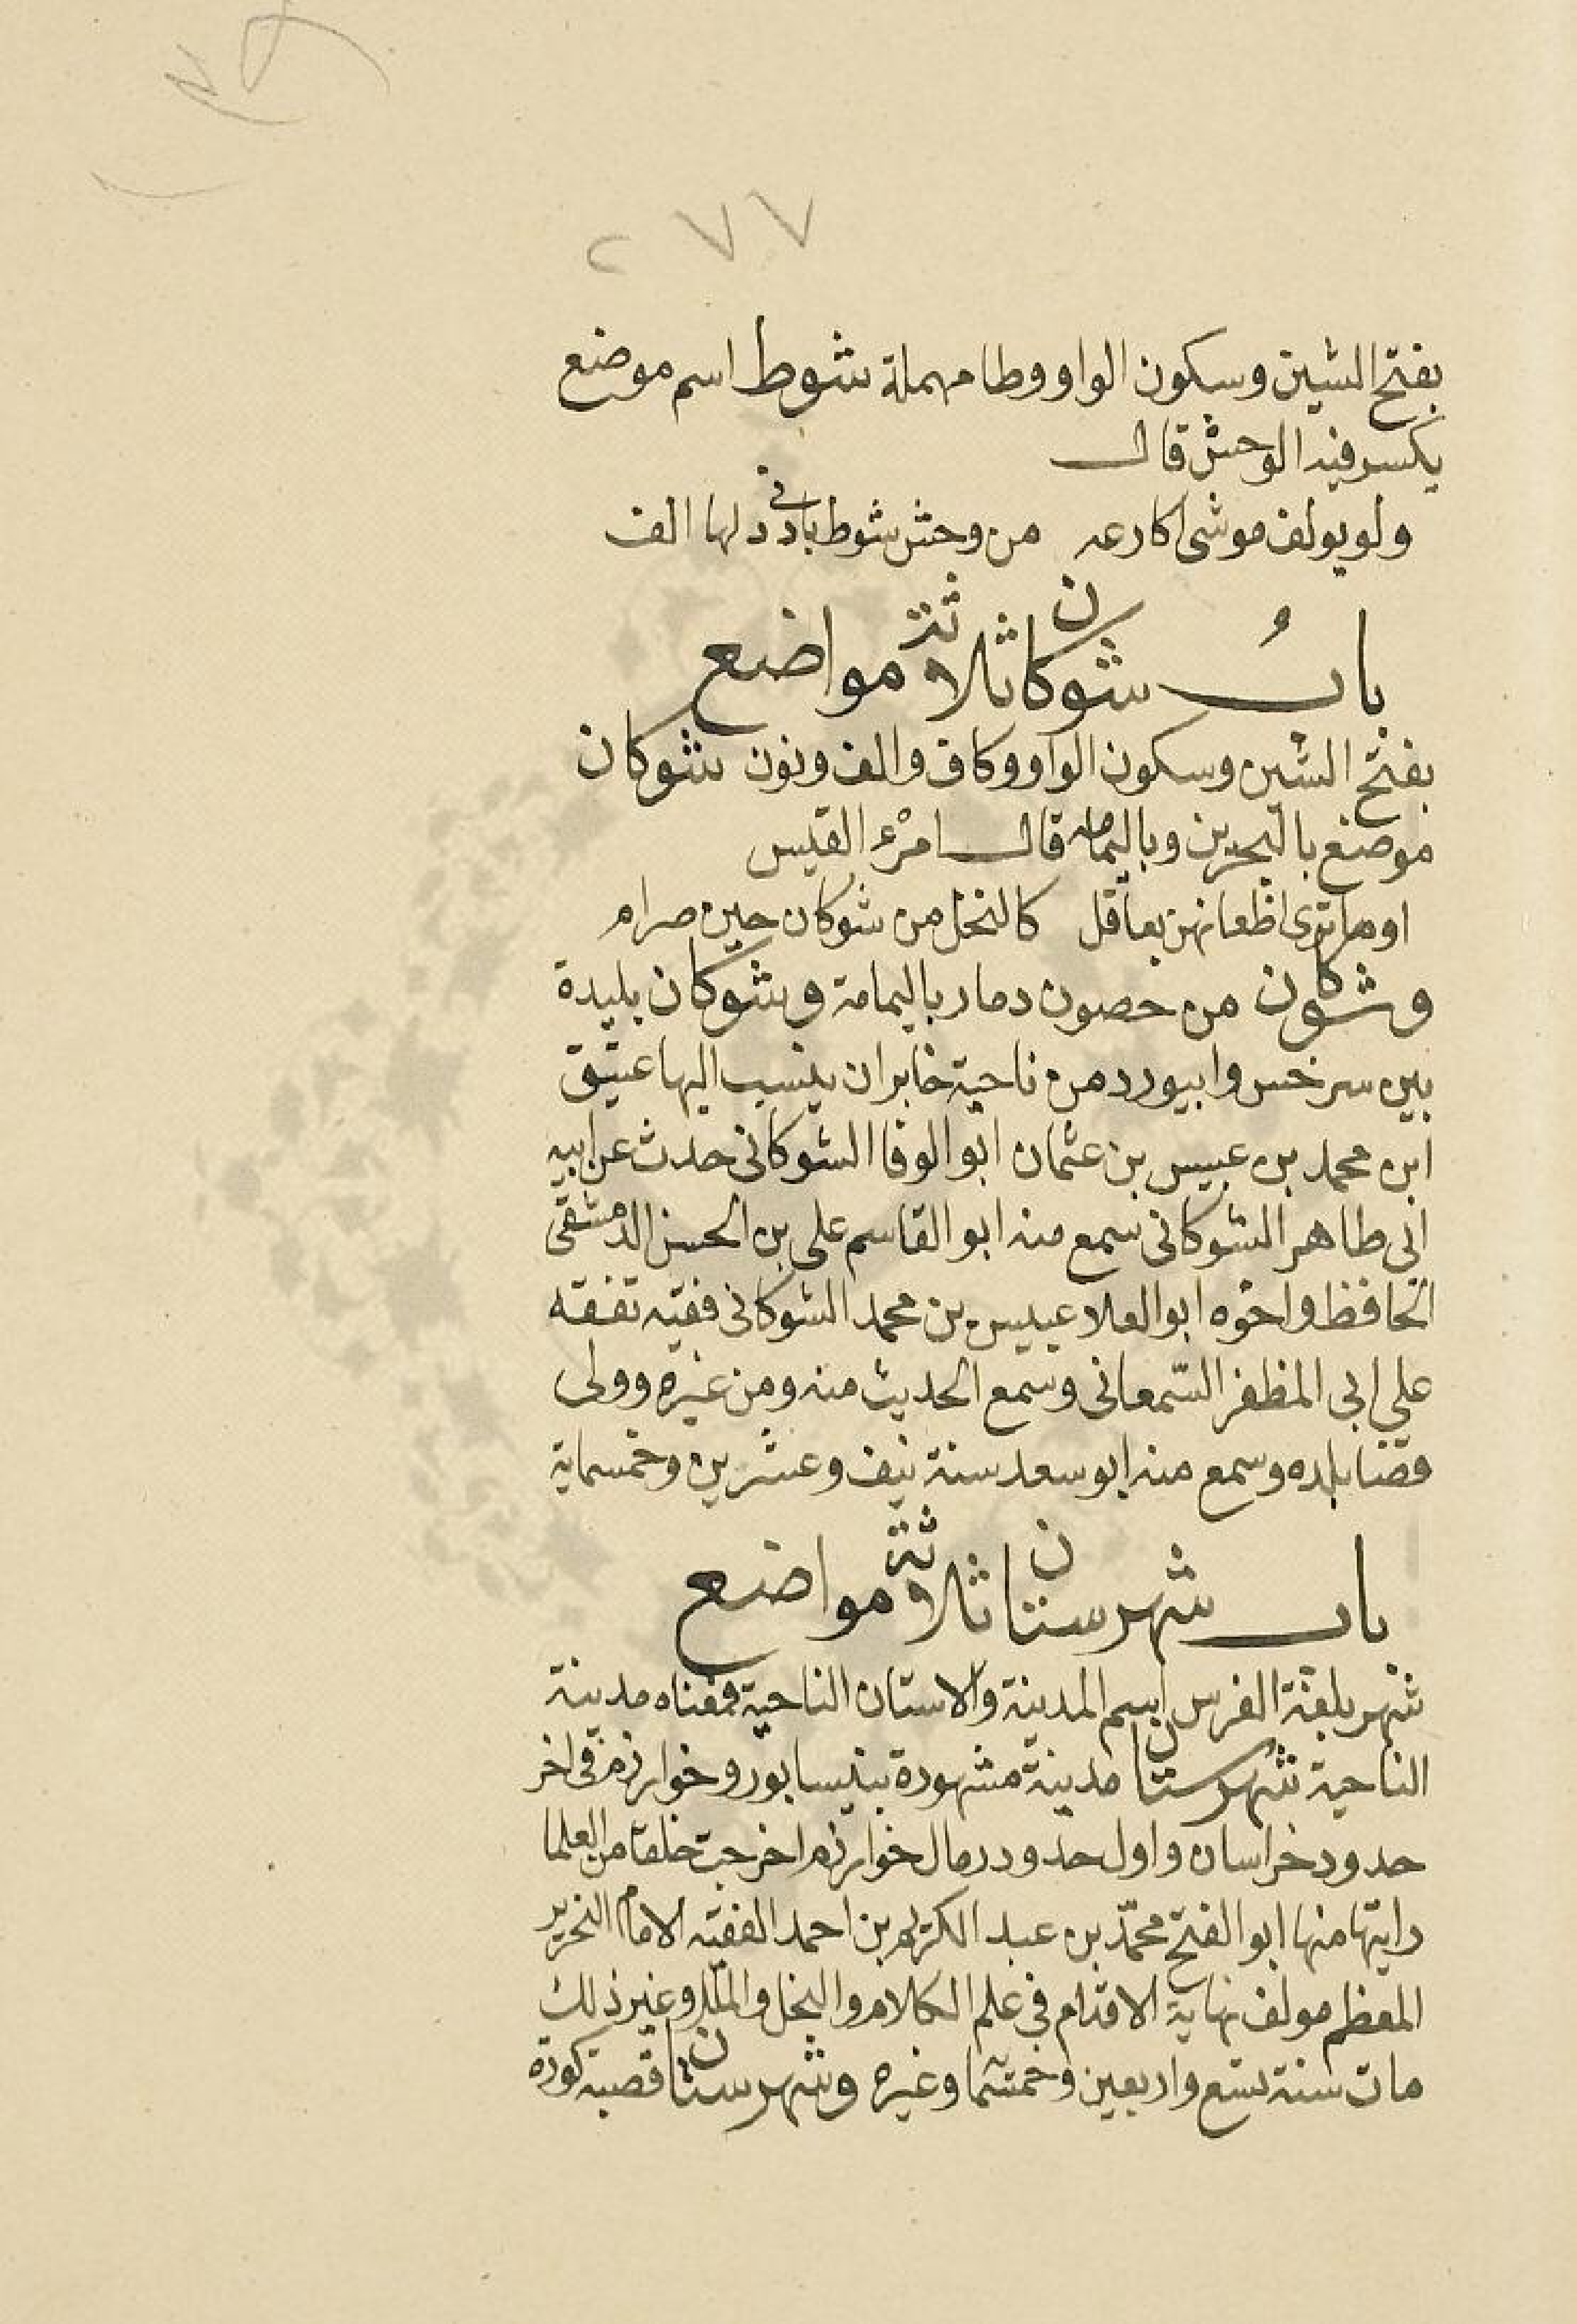 ٢٧٧
بفتح الشين وسكون الواو وطا مهملة شوط اسم موضع
يكسر فيه الوحش قال
ولو يولف موشى اكارعه من وحش شوط بادنى دلها الف
باب شوكان ثلاثة مواضع
بفتح الشين وسكون الواو وكاف والف ونون شوكان
موضع بالبحرين وباليمامه قال امرء القيس
اوما ترى اظعانهن بعاقل كالنخل من شوكان حين صرام
وشوكان من حصون دمار باليمامة وشوكان بليدة
بين سرخس وابيورد من ناحية خابران ينسب اليها عتيق
ابن محمد بن عبيس بن عثمان ابو الوفا الشوكانى حدث عن ابيه
ابى طاهر الشوكانى سمع منه ابو القاسم على بن الحسن الدمشقى
الحافظ واخوه ابو العلا عبيس بن محمد الشوكانى فقيه تفقه
على ابى المظفر السّمعانى وسمع الحديث منه ومن غيره وولى
قضا بلده وسمع منه ابو سعد سنة نيف وعشرين وخمسماية
باب شهرستان ثلاثة مواضع
شهر بلغة الفرس اسم المدينة والاستان الناحية فمعناه مدينة
الناحية شهرستان مدينة مشهورة بنيسابور وخوارزم فى اخر
حدود خراسان واول حدود رمال خوارزم اخرجت خلقا من العلما
رايتها منها ابو الفتح محمّد بن عبد الكريم بن احمد الفقيه الامام النحرير
المعظم مولف نهاية الاقدام فى علم الكلام والنحل والملل وغير ذلك
مات سنة تسع واربعين وخمسما وغيره وشهرستان قصبة كورة